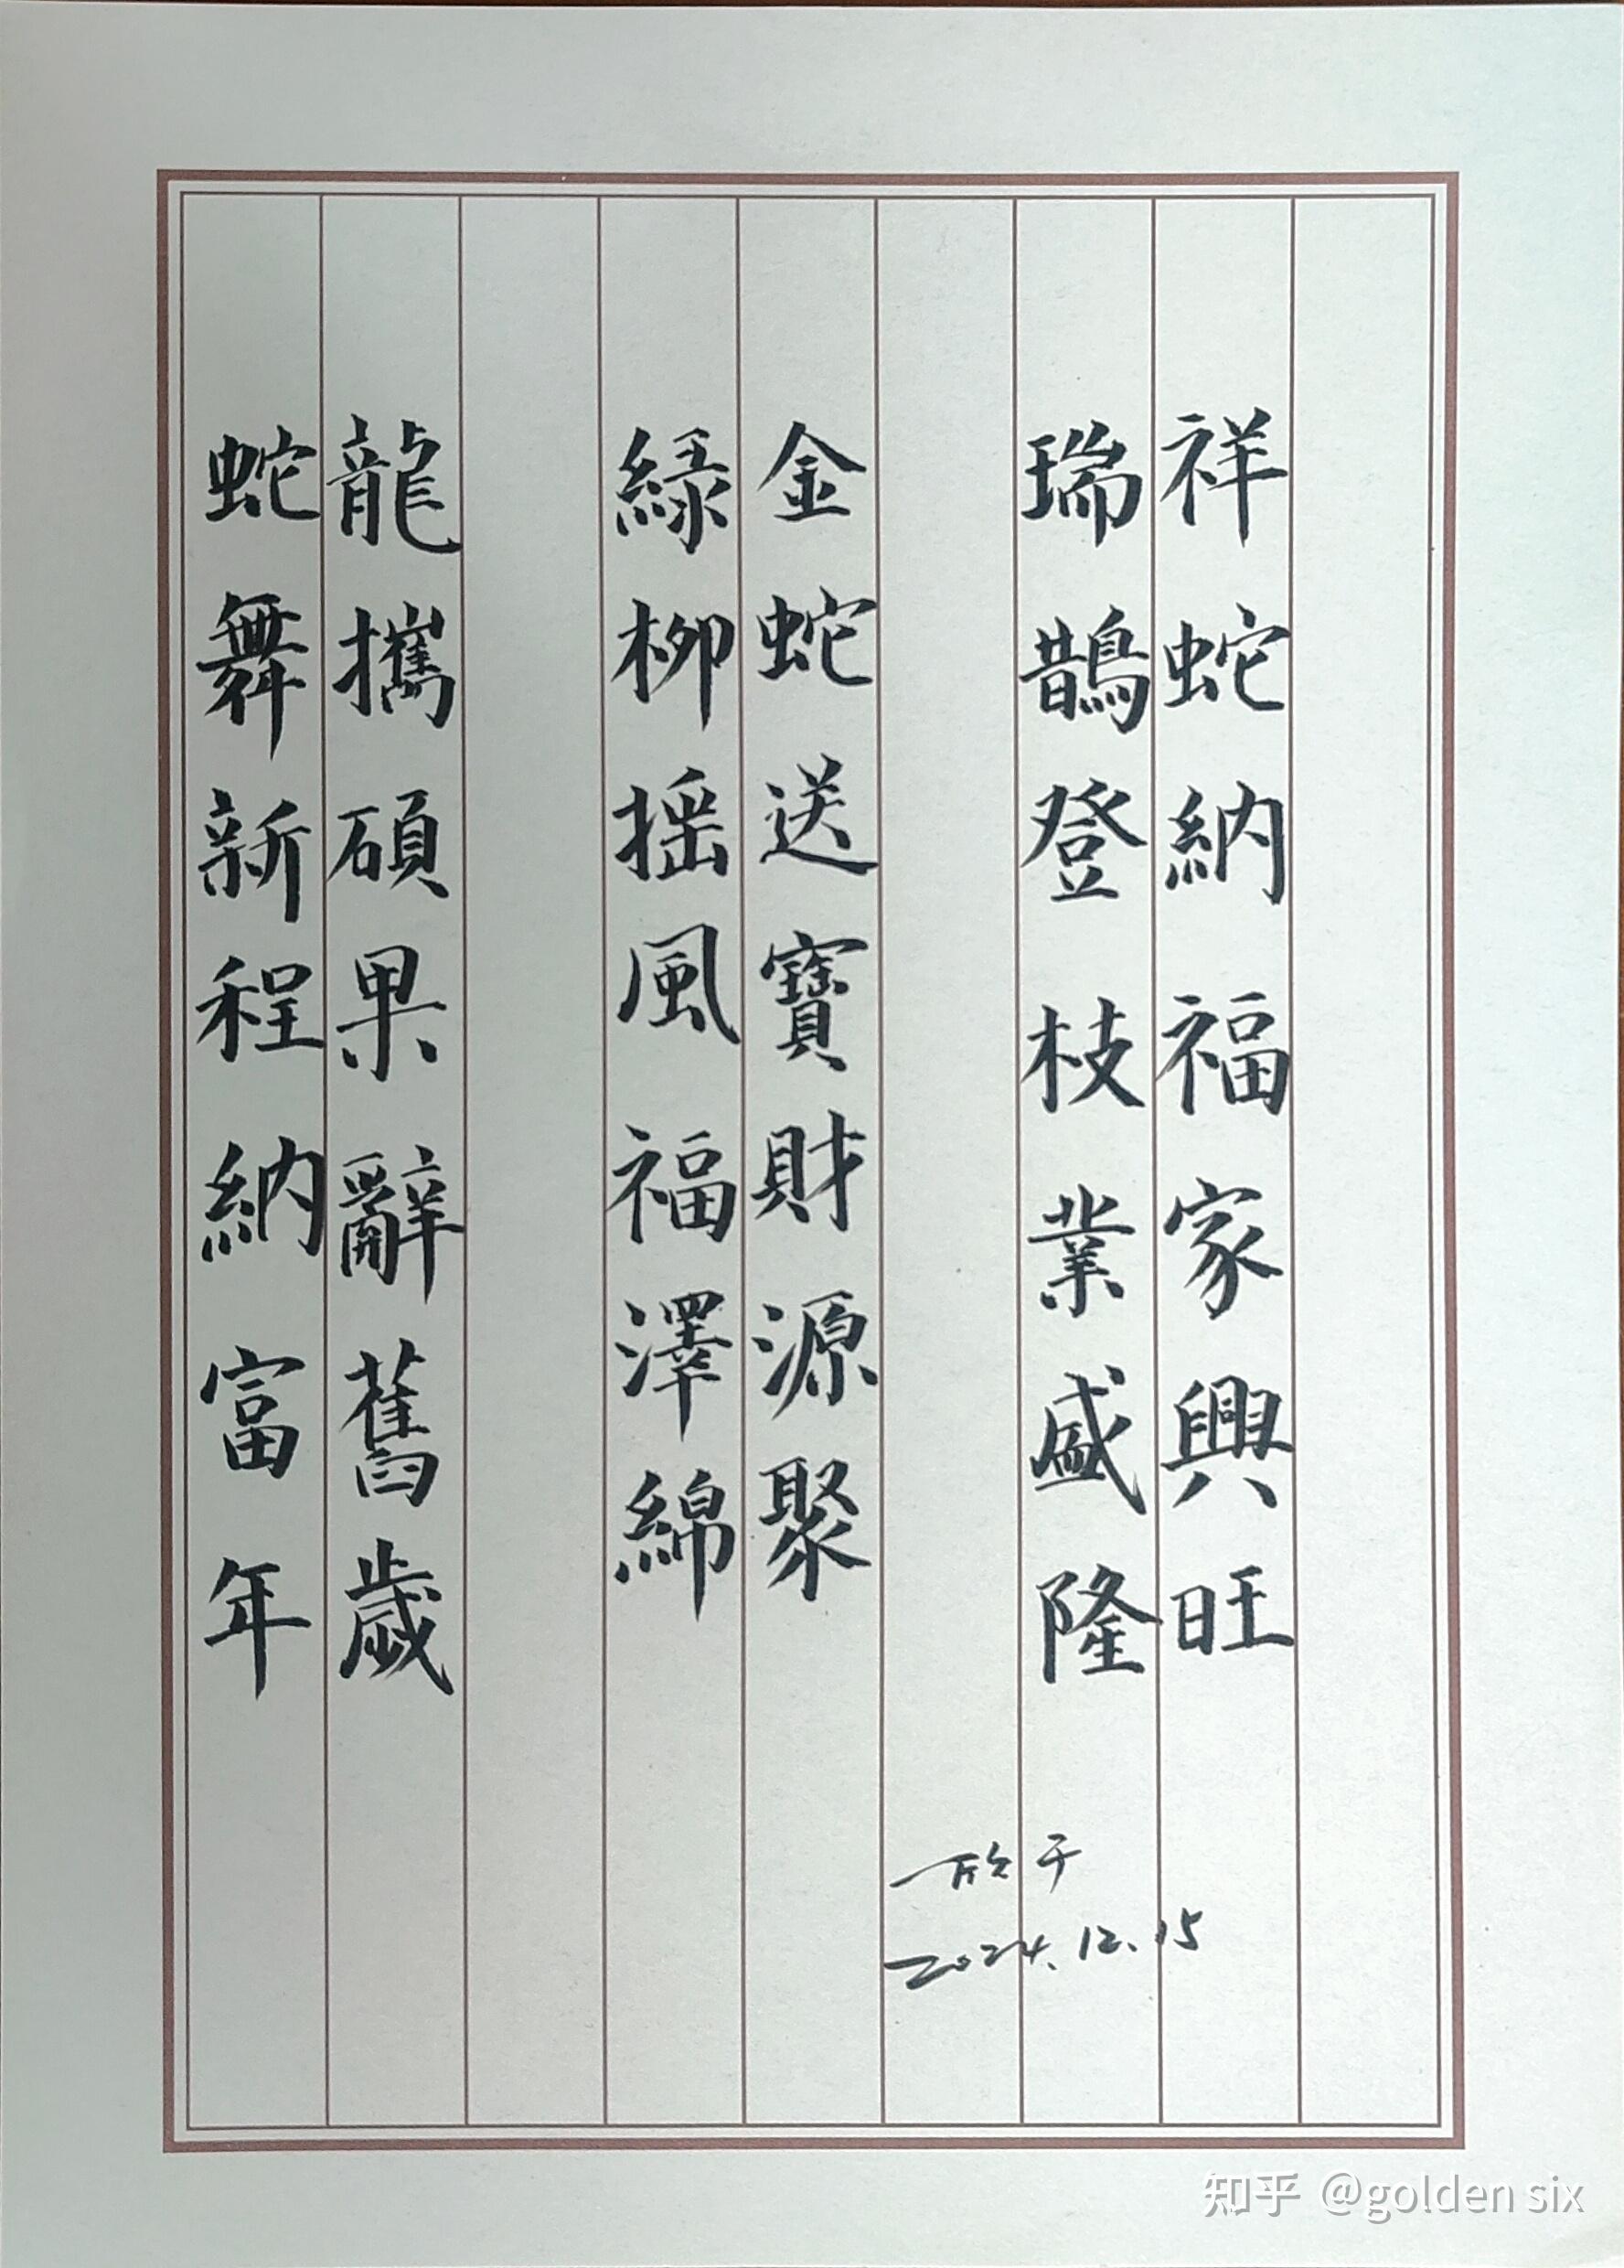 祥蛇納福家興旺
瑞鵲登枝業盛隆
金蛇送寶財源聚
綠柳摇風福澤綿
龍攜碩果辭舊歲
蛇舞新程納富年
2024.12.15
知乎 @golden six